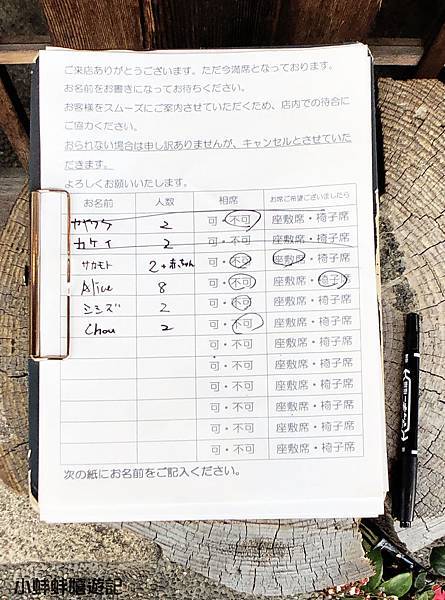 ご来店ありがとうございます。ただ今満席となっております。
お名前をお書きになってお待ちください。
お客様をスムーズにご案内させていただくため、店内での待合に
ご協力ください。
おられない場合は申し訳ありませんが、キャンセルとさせていた
だきます。
よろしくお願いいたします。
お名前 人数 相席 お席ご希望ございましたら
2 可・不可 座敷席・椅子席
カケイ 2 可・不可 座敷席・椅子席
サカモト 2+赤ちゃん 可・不可 座敷席・椅子席
Alice 8 可・不可 座敷席・椅子席
シミズ 2 可・不可 座敷席・椅子席
Chou 2 可・不可 座敷席・椅子席
可・不可 座敷席・椅子席
可・不可 座敷席・椅子席
可・不可 座敷席・椅子席
可・不可 座敷席・椅子席
可・不可 座敷席・椅子席
可・不可 座敷席・椅子席
次の紙にお名前をご記入ください。
小蚌蚌嬉遊記